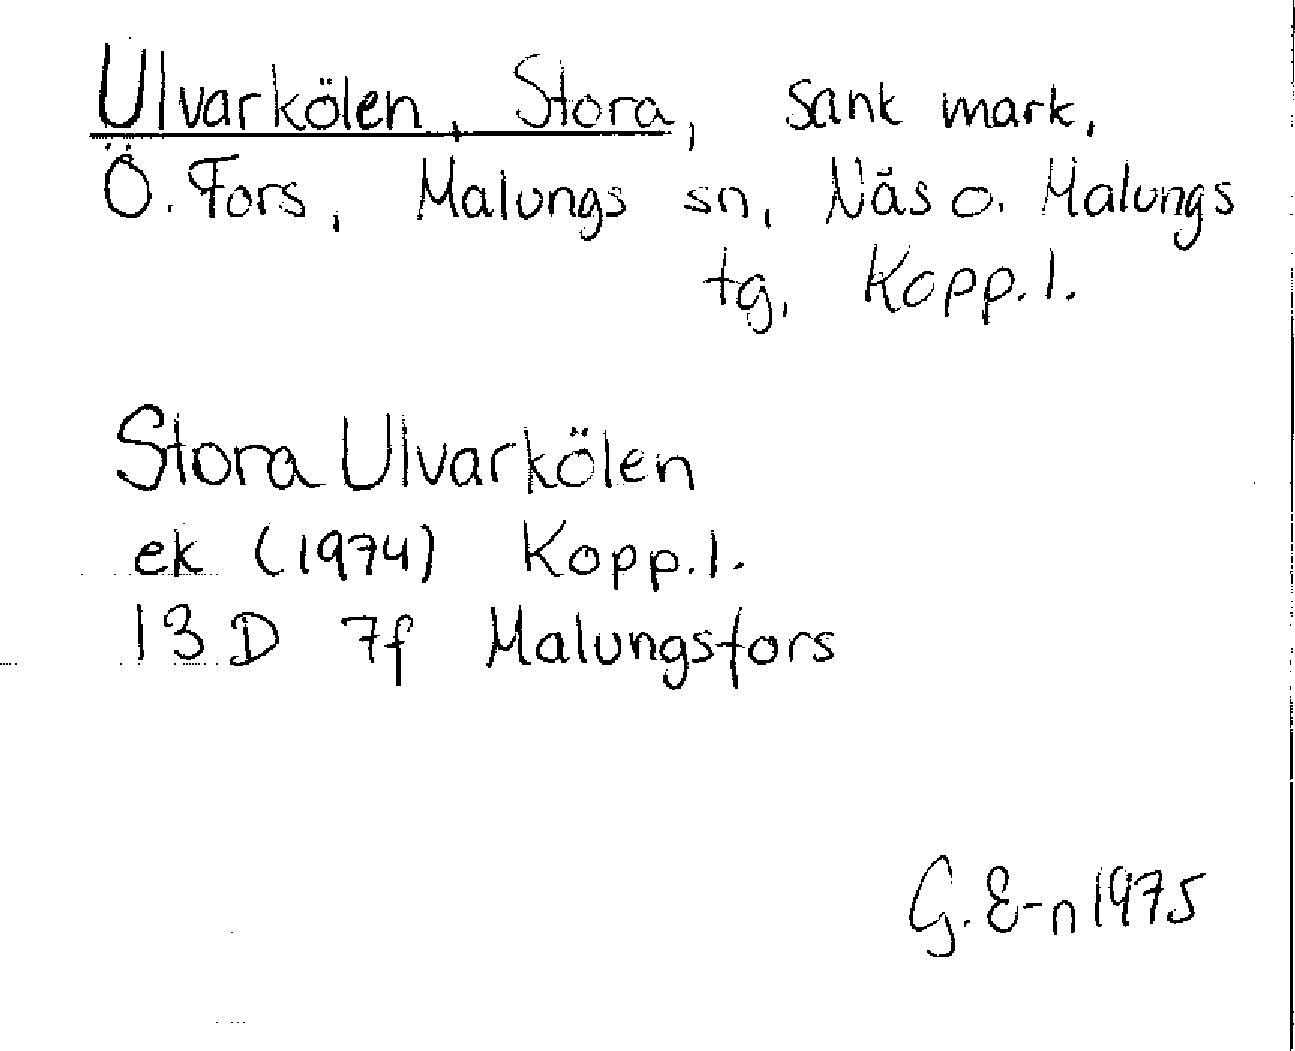 Ulvarkölen, Stora, sank mark,
Ö. Fors, Malungs sn, Näs o. Malungs
tg, Kopp.l.
Stora Ulvarkölen
ek (1974) Kopp.l.
13 D 7f Malungsfors
G. E-n 1975